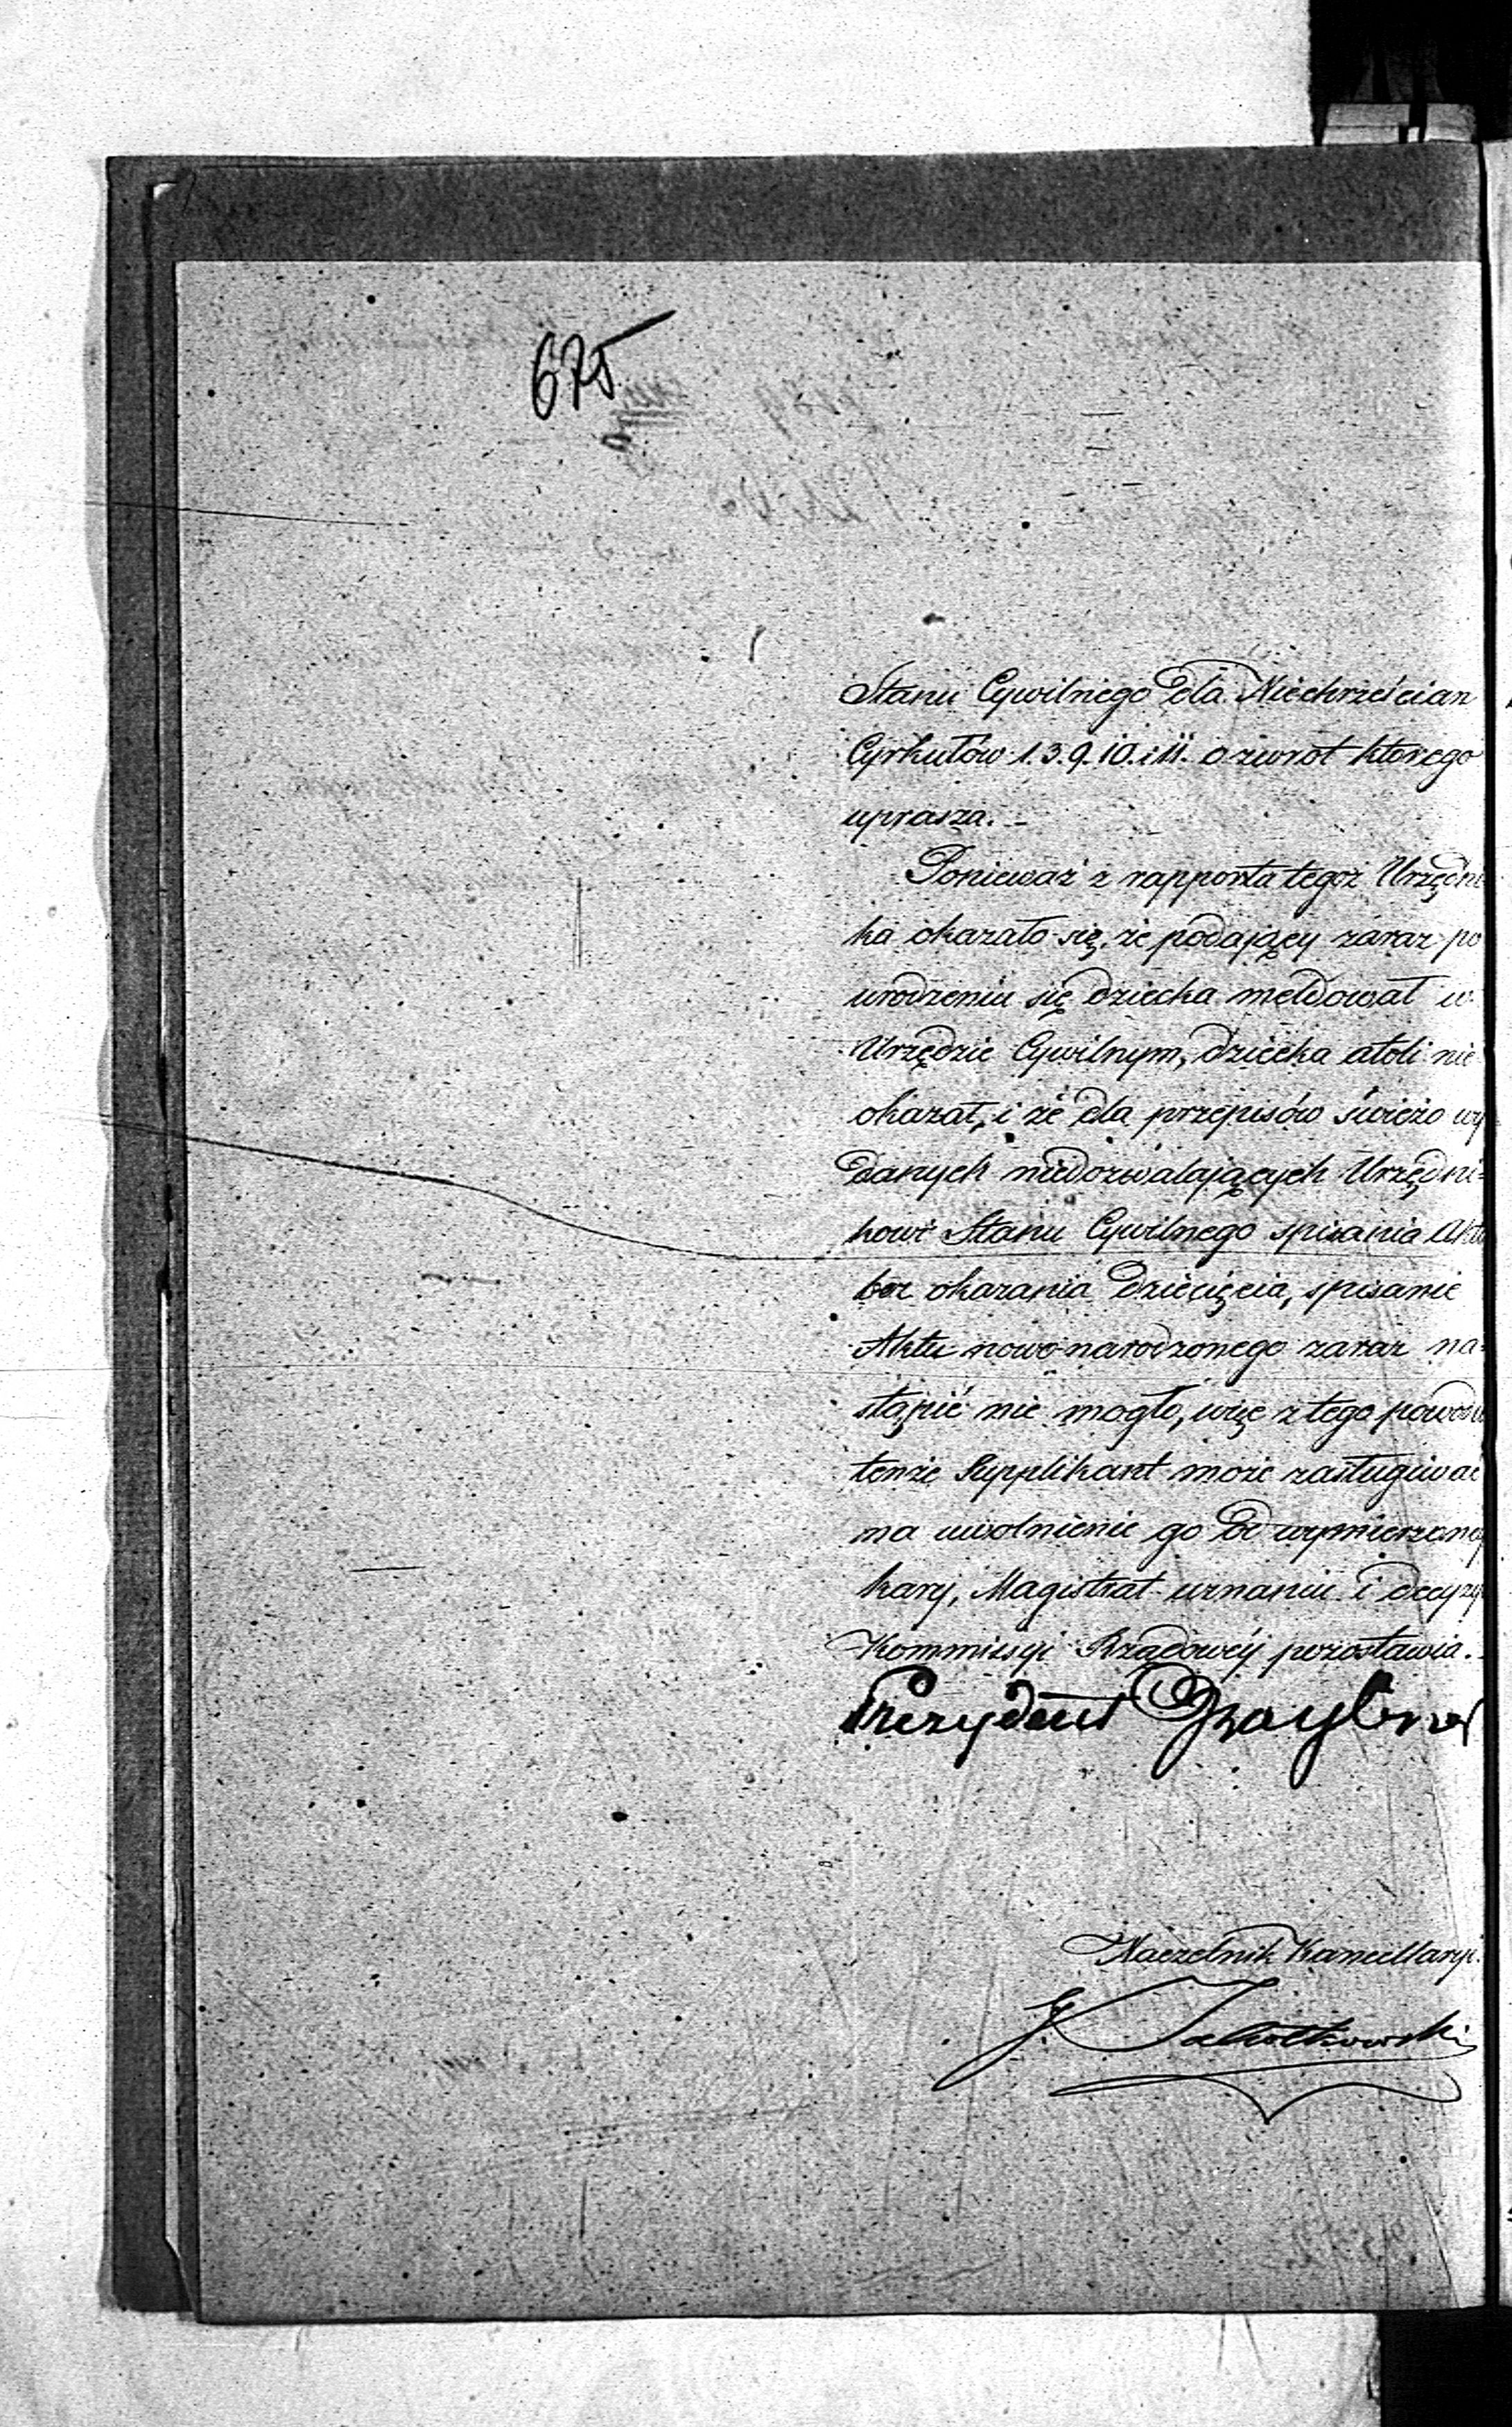 675
Stanu Cywilnego dla Niechrześcian
Cyrkułów 1. 3. 9. 10. i 11. o zwrot którego
uprasza. –
Ponieważ z rapportu tegoż Urzędni
ka okazało się, że podający zaraz po
urodzeniu się dziecka meldował w
Urzędzie Cywilnym, dziecka atoli nie
okazał, i że dla przepisów świeżo wy
danych niedozwalających Urzędni=
kowi Stanu Cywilnego spisania Aktu
bez okazania dziecięcia, spisanie
Aktu nowo-narodzonego zaraz na=
stąpić nie mogło, więc z tego powodu
tenże Supplikant może zasługiwać
na uwolnienie go od wymierzonej
kary, Magistrat uznaniu i decyzyi
Kommissyi Rządowéy pozostawia. –
Prezydent
Naczelnik Kancellaryi.